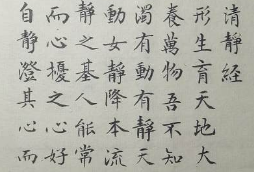 清靜經
形生育天地大
養萬物吾不知
濁有動有靜天
動女靜降本流
靜之基人能常
而心擾之心好
自靜澄其心而